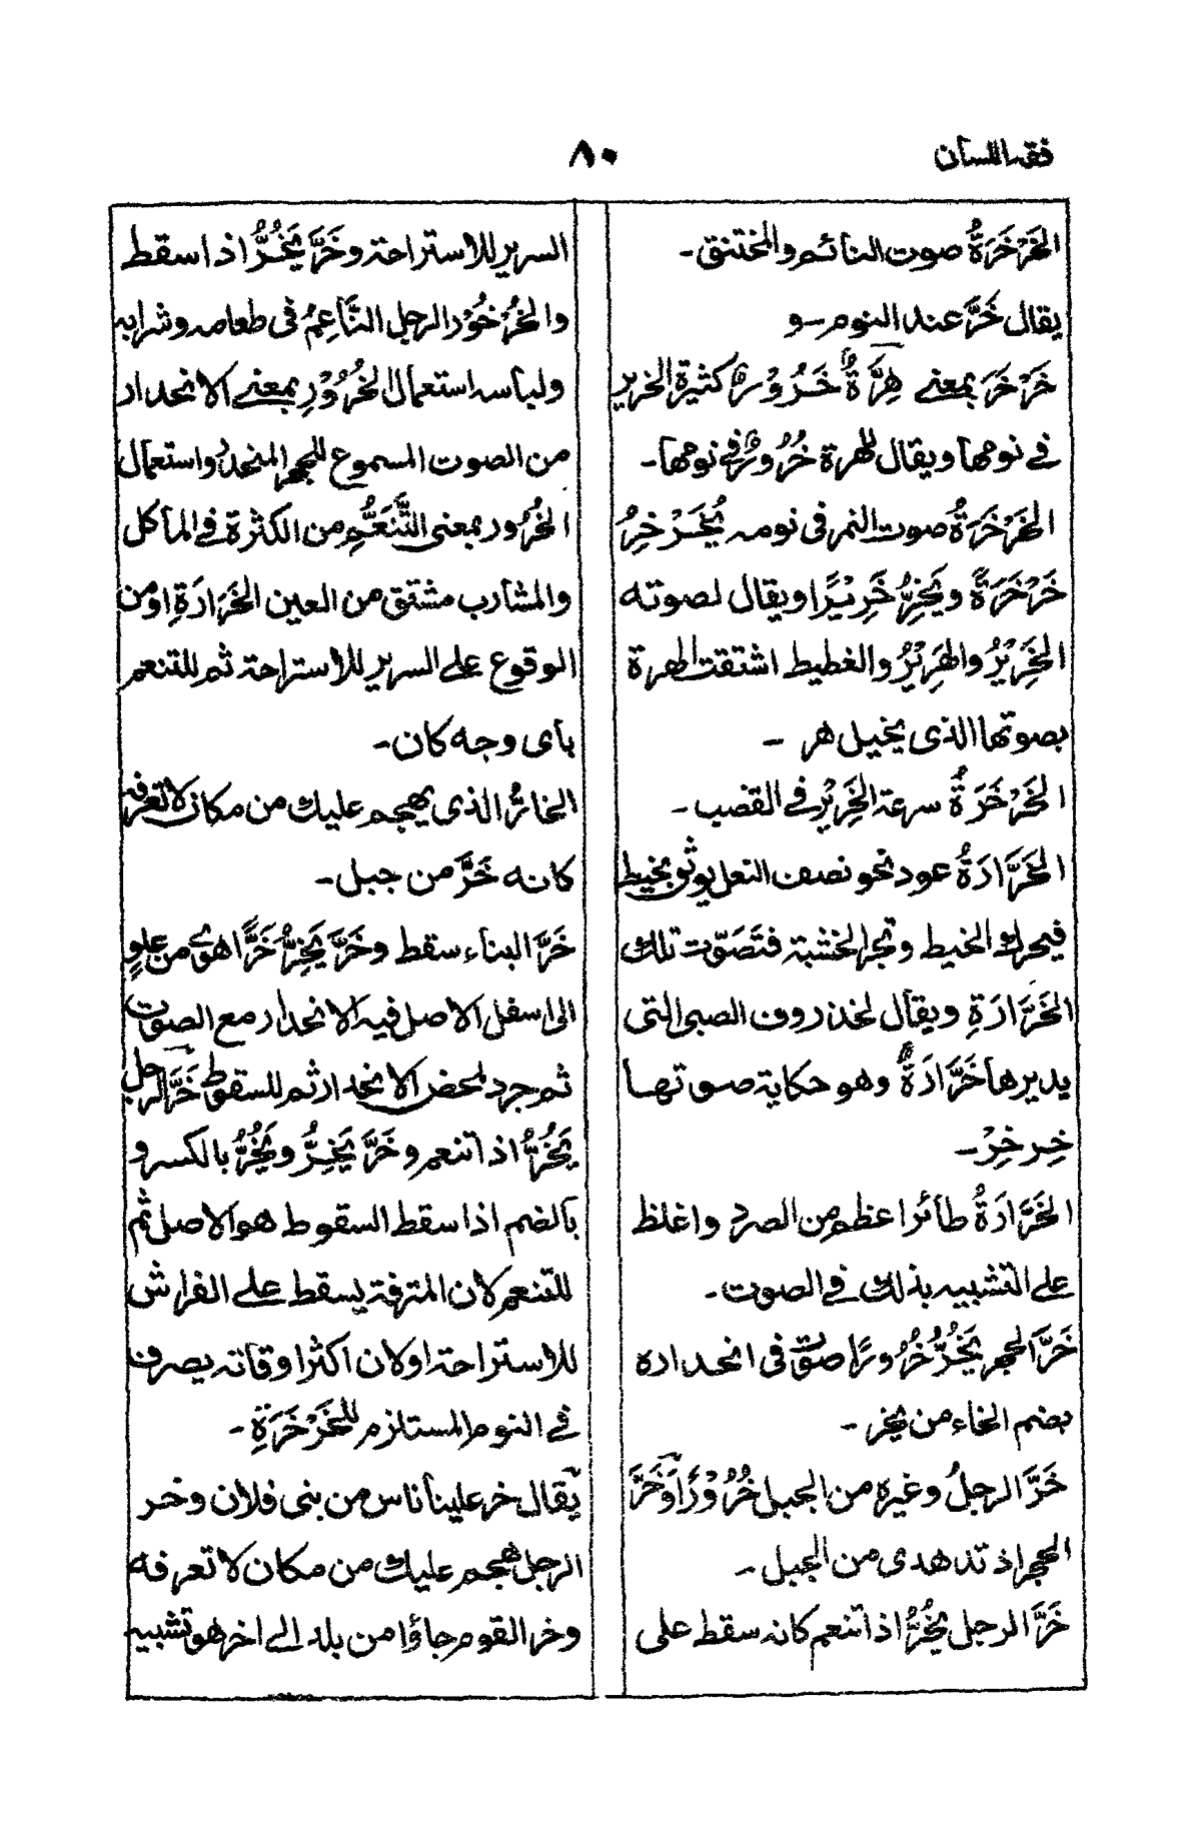 فقه اللسان
٨٠
الخَرْخَرَةُ صوت النائم والمختنق ـ
يقال خَرَّ عند النوم ـ و
خَرْخَرَ بمعنى هِرَّةٌ خَرُوْرٌ كثيرة الخرير
فى نومها ويقال للهرة خُرُورٌ فى نومها ـ
الخَرْخَرَةُ صوت النمر فى نومه يُخَرْخِرُ
خَرْخَرَةً ويَخِرُّ خَرِيْرًا ويقال لصوته
الخَرِيْرُ والهَرِيْرُ والغطيط اشتقت الهرة
بصوتها الذى يخيل هر ـ
الخَرْخَرَةُ سرعة الخَرِيْر فى القصب ـ
الخَرَّارَةُ عود نحو نصف النعل يوثق بخيط
فيحرك الخيط وتجر الخشبة فتَصَوّت تلك
الخَرَّارَةِ ويقال لخذروف الصبى التى
يديرها خَرَّارَةٌ وهو حكاية صوتها
خِر خِرْ ـ
الخَرَّارَةُ طائر اعظم من الصرد واغلظ
على التشبيه بذلك فى الصوت ـ
خَرَّ الحجر يَخُرُّ خُرُورًا صوّت فى انحداره
بضم الخاء من يخر ـ
خَرَّ الرجلُ وغيره من الجبل خُرُوْرًا وَخَرَّ
الحجر اذ تدهدى من الجبل ـ
خَرَّ الرجل يَخُرُّ اذا تنعم كانه سقط على
السرير للاستراحة وخَرَّ يَخُرُّ اذا سقط
والخُرْخُوْر الرجل النَّاعِمُ فى طعامه وشرابه
ولباسه استعمال الخُرُوْرِ بمعنى الانحدار
من الصوت المسموع للحجر المنحدر واستعمال
الخُرُور بمعنى التَّنَعُّمِ من الكثرة فى المآكل
والمشارب مشتق من العين الخَرَارَةِ او من
الوقوع على السرير للاستراحة ثم للتنعم
بأى وجه كان ـ
الخائر الذى يهجم عليك من مكان لا تعرفه
كانه خَرَّ من جبل ـ
خَرَّ البناء سقط وخَرَّ يَخِرُّ خَرًّا هوى من علوٍ
الى اسفل الاصل فيه الانحدار مع الصوت
ثم جرد لمحض الانحدار ثم للسقوط خَرَّ الرجل
يَخُرُّ اذا تنعم وخَرَّ يَخِرُّ ويَخُرُّ بالكسر و
بالضم اذا سقط السقوط هو الاصل ثم
للتنعم لان المترفة يسقط على الفراش
للاستراحة او لان اكثر اوقاته يصرف
فى النوم المستلزم للخَرْخَرَةِ ـ
يقال خر علينا ناس من بنى فلان وخر
الرجل هجم عليك من مكان لا تعرفه
وخر القوم جاؤا من بلد الى اخر هو تشبيه